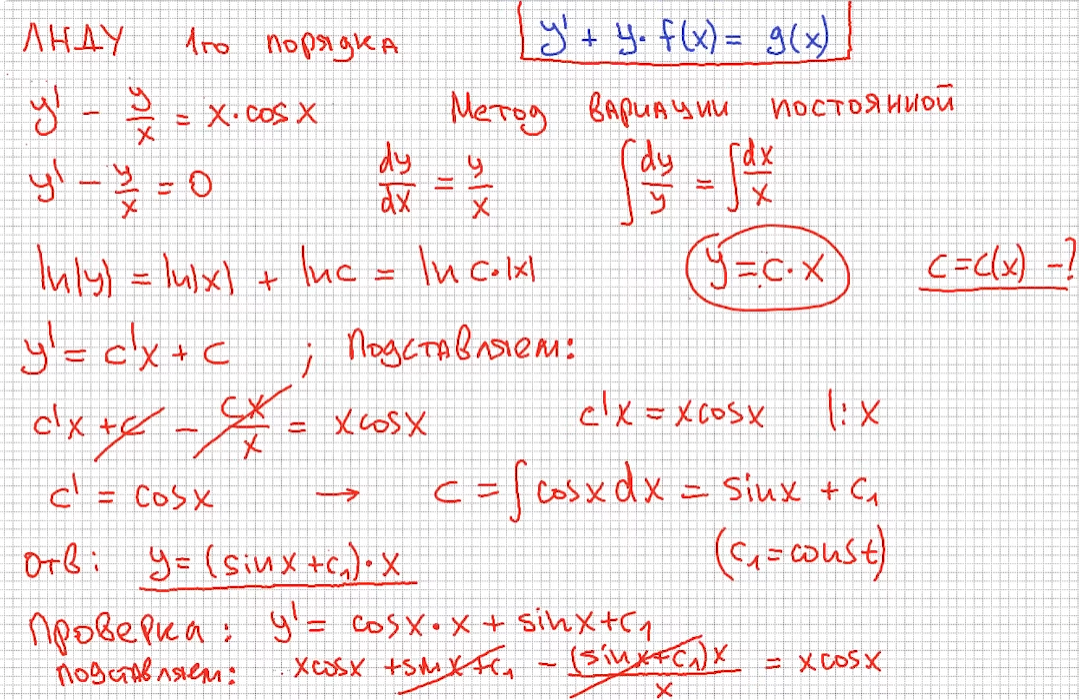 ЛНДУ 1го порядка y' + y · f(x) = g(x)
y' - y/x = x·cosx Метод вариации постоянной
y' - y/x = 0 dy/dx = y/x ∫dy/y = ∫dx/x
ln|y| = ln|x| + lnc = ln c·|x| y = c·x c=c(x) -?
y' = c'x + c ; Подставляем:
c'x + c - cx/x = xcosx c'x = xcosx |:x
c' = cosx → c = ∫cosxdx = sinx + c₁
Отв: y=(sinx+c₁)·x (c₁=const)
Проверка: y' = cosx·x + sinx+c₁
подставляем: xcosx +sinx+c₁ - (sinx+c₁)x/x = xcosx